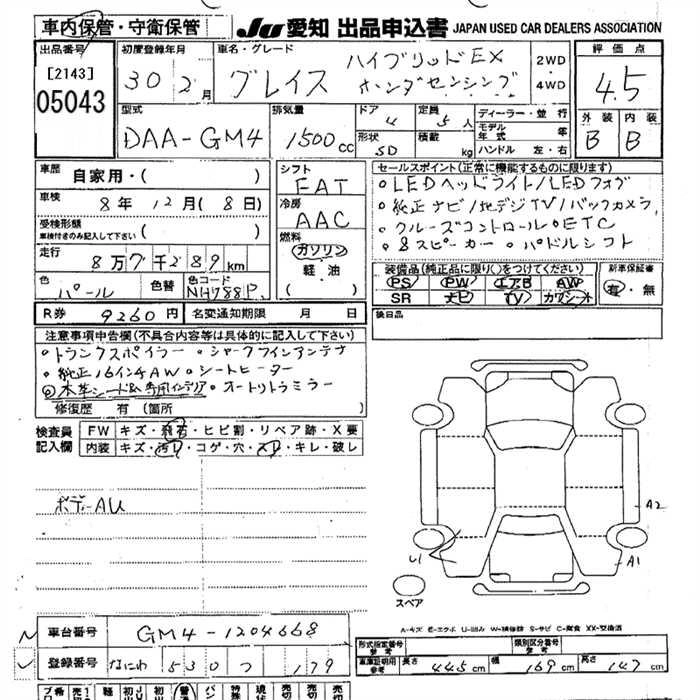 車内保管・守衛保管 JU 愛知 出品申込書 JAPAN USED CAR DEALERS ASSOCIATION
出品番号 初度登録年月 車名・グレード 評価点
[2143] 30 2月 グレイス ハイブリッドEX 2WD・4WD 4.5
05043 ホンダセンシング
外装 内装
型式 排気量 ドア 4 定員 5人 ディーラー・並行 B B
DAA-GM4 1500cc 形状 SD 積載 kg モデル年式 年
ハンドル 左・右
車歴 自家用・( ) シフト セールスポイント(正常に機能するものに限ります)
FAT ・LEDヘッドライト/LEDフォグ
車検 8年12月(8日) 冷房 ・純正ナビ/地デジTV/バックカメラ
受検形態 AAC ・クルーズコントロール・ETC
車検付きのみ記入して下さい ( ) 燃料 ・8スピーカー ・パドルシフト
走行 8万7千289km ガソリン 装備品(純正品に限り()をつけてください) 新車保証書
軽・油 PS PW エアB AW 有・無
色 パール 色替 色コード NH788P ( ) SR ナビ TV カワシート
R券 9260円 名変通知期限 月 日 後日品
注意事項申告欄(不具合内容等は具体的に記入して下さい)
・トランクスポイラー ・シャークフィンアンテナ
・純正16インチAW ・シートヒーター
本革シート&専用インテリア ・オートリトラミラー
修復歴 有(箇所 )
検査員 FW キズ・飛石・ヒビ割・リペア跡・X要
記入欄 内装 キズ・汚れ・コゲ・穴・スレ・キレ・破レ
ボディーAU
A2
U1 A1
スペア
A-キズ E-エクボ U-凹み W-補修跡 S-サビ C-腐食 XX-交換済
車台番号 GM4-1204668
形式指定番号 参考 類別区分番号 参考
登録番号 なにわ 530 つ 179 車庫証明用 参考 長さ 445cm 幅 169cm 高さ 147cm